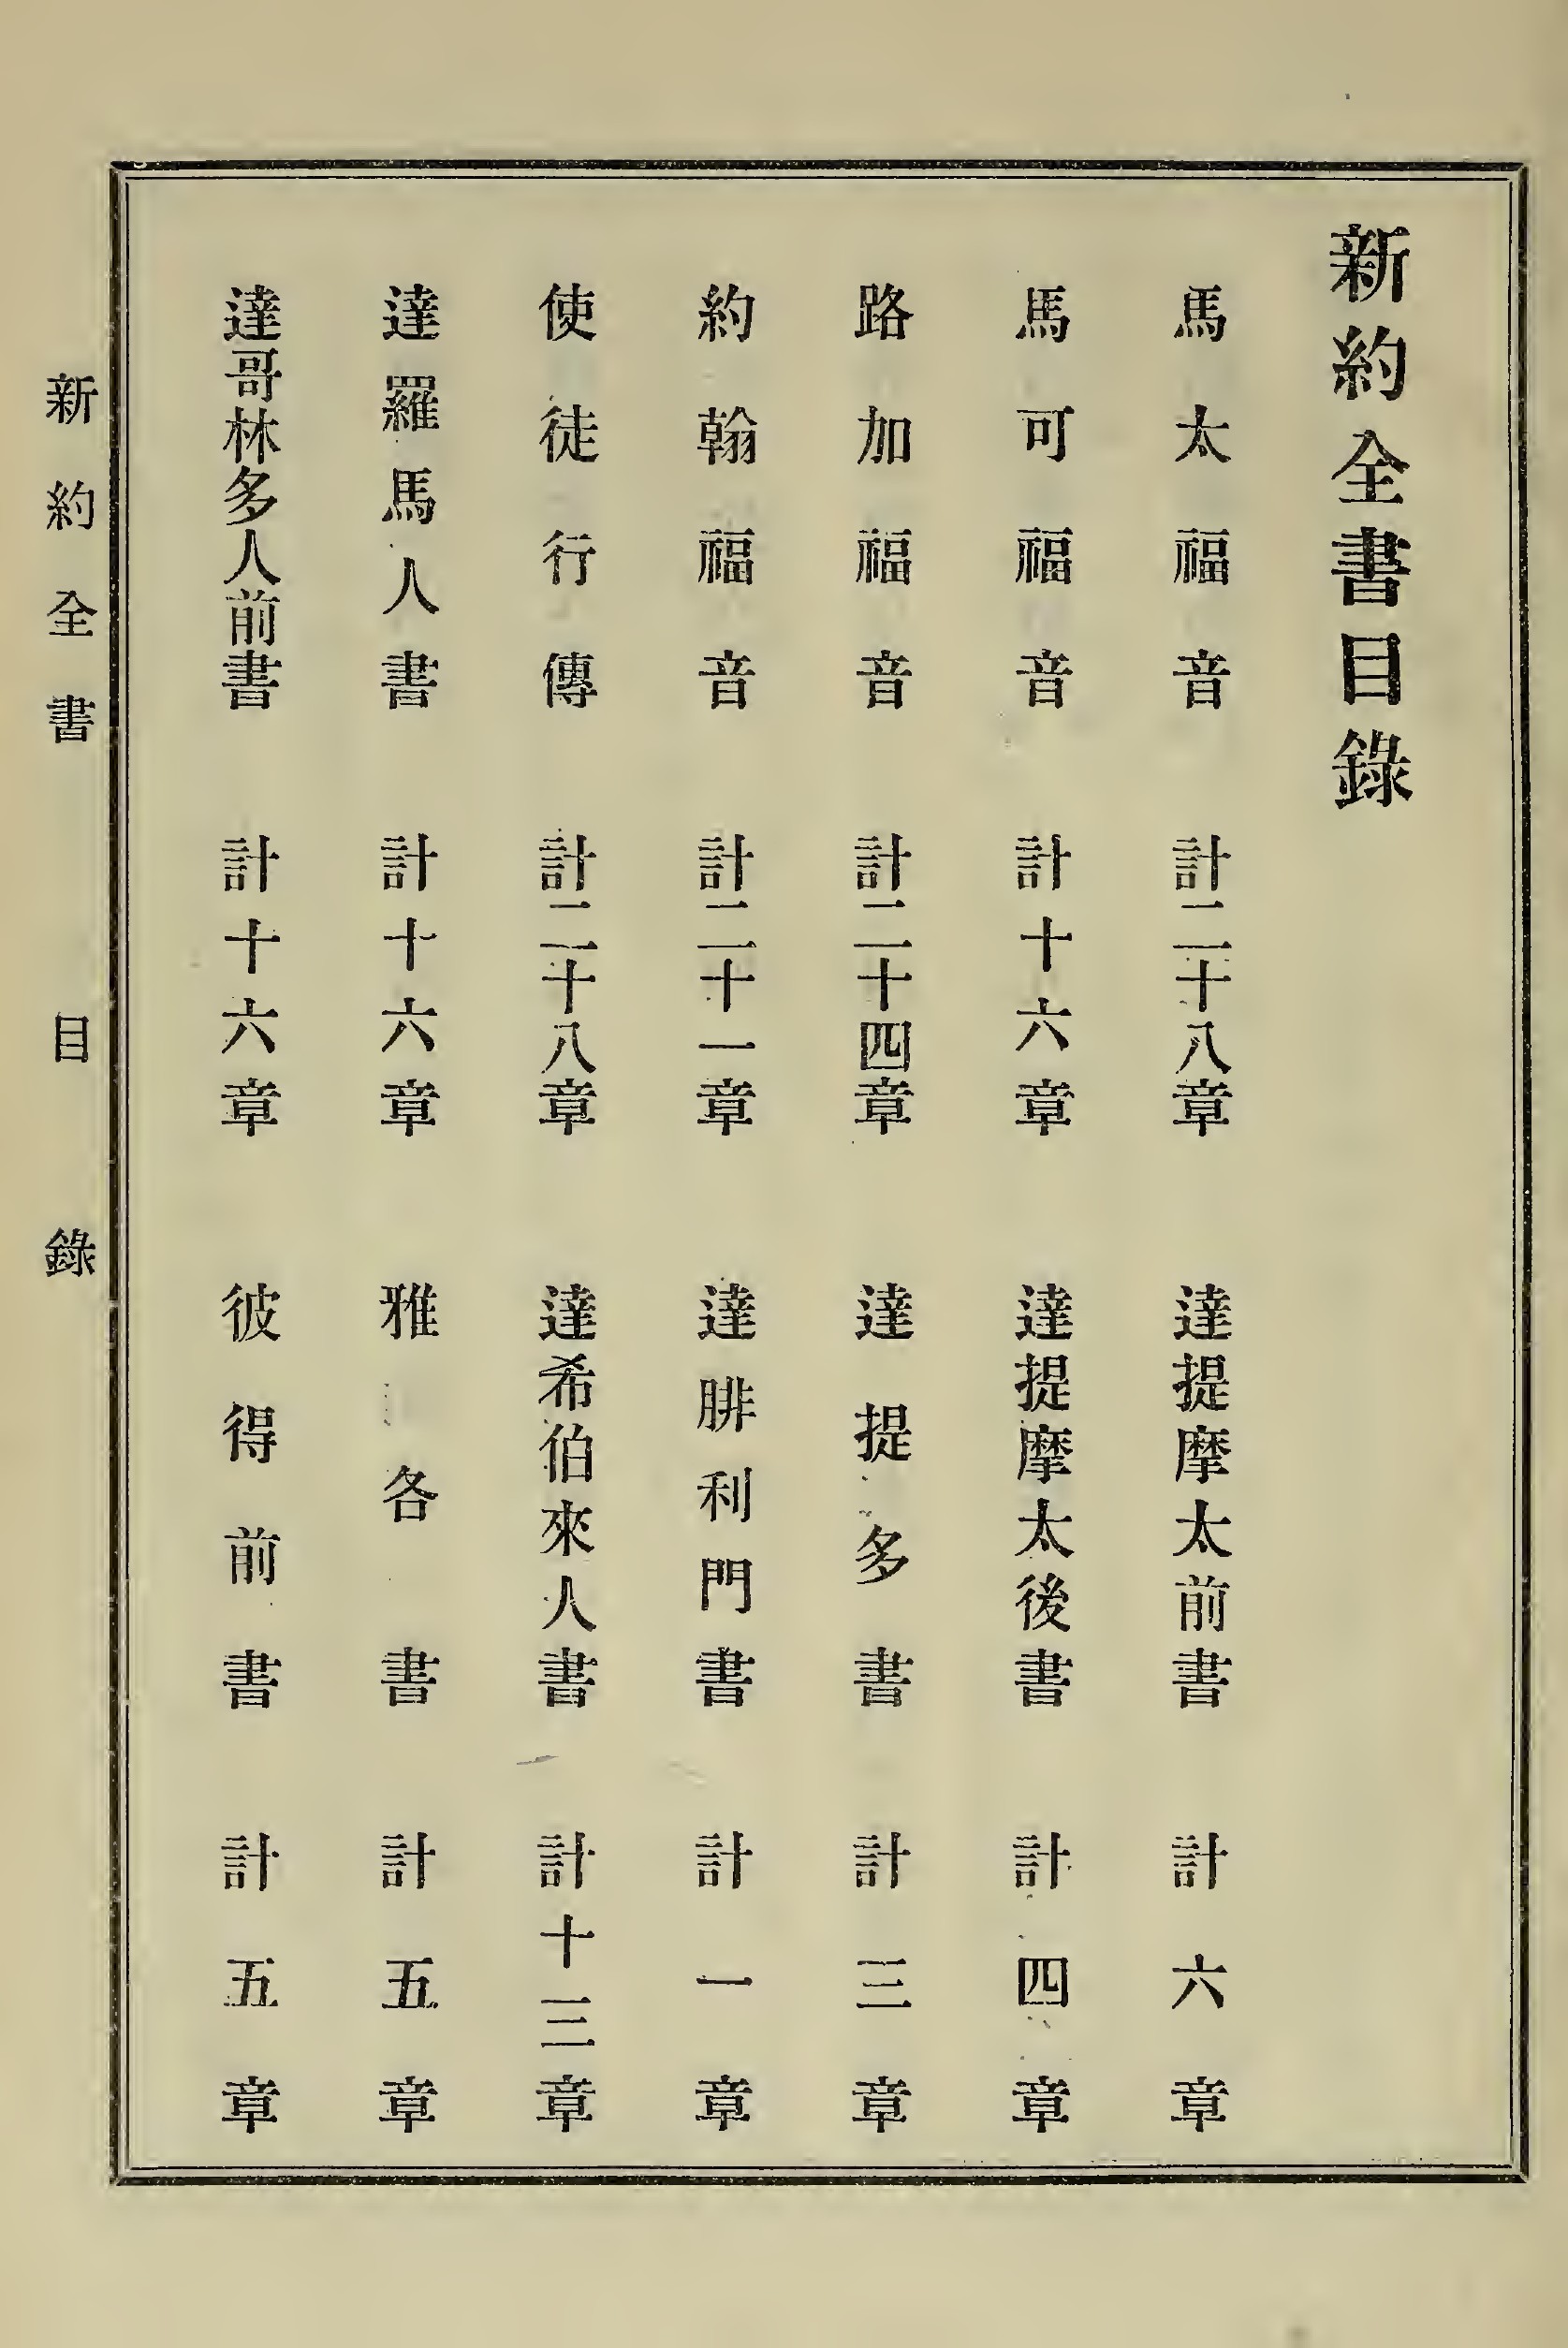 新約全書目錄
馬太福音 計二十八章 達提摩太前書 計六章
馬可福音 計十六章 達提摩太後書 計四章
路加福音 計二十四章 達提多書 計三章
約翰福音 計二十一章 達腓利門書 計一章
使徒行傳 計二十八章 達希伯來人書 計十三章
達羅馬人書 計十六章 雅各書 計五章
達哥林多人前書 計十六章 彼得前書 計五章
新約全書 目錄